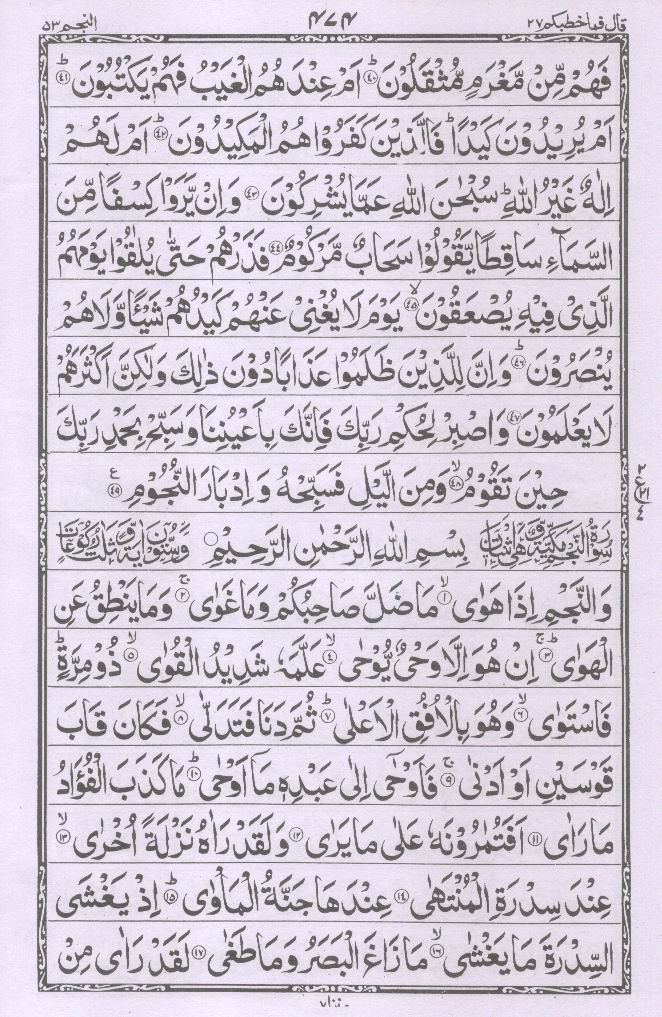 قال فما خطبكم ٢٧ ٤٧٤ النجم ٥٣
فَهُمْ مِّنْ مَّغْرَمٍ مُّثْقَلُوْنَ ؕ﴿۴۰﴾ اَمْ عِنْدَهُمُ الْغَيْبُ فَهُمْ يَكْتُبُوْنَ ؕ﴿۴۱﴾
اَمْ يُرِيْدُوْنَ كَيْدًا ؕ فَالَّذِيْنَ كَفَرُوْا هُمُ الْمَكِيْدُوْنَ ؕ﴿۴۲﴾ اَمْ لَهُمْ
اِلٰهٌ غَيْرُ اللّٰهِ ؕ سُبْحٰنَ اللّٰهِ عَمَّا يُشْرِكُوْنَ ﴿۴۳﴾ وَ اِنْ يَّرَوْا كِسْفًا مِّنَ
السَّمَآءِ سَاقِطًا يَّقُوْلُوْا سَحَابٌ مَّرْكُوْمٌ ﴿۴۴﴾ فَذَرْهُمْ حَتّٰى يُلٰقُوْا يَوْمَهُمُ
الَّذِىْ فِيْهِ يُصْعَقُوْنَ ۙ﴿۴۵﴾ يَوْمَ لَا يُغْنِىْ عَنْهُمْ كَيْدُهُمْ شَيْـًٔا وَّ لَا هُمْ
يُنْصَرُوْنَ ؕ﴿۴۶﴾ وَ اِنَّ لِلَّذِيْنَ ظَلَمُوْا عَذَابًا دُوْنَ ذٰلِكَ وَ لٰكِنَّ اَكْثَرَهُمْ
لَا يَعْلَمُوْنَ ﴿۴۷﴾ وَ اصْبِرْ لِحُكْمِ رَبِّكَ فَاِنَّكَ بِاَعْيُنِنَا وَ سَبِّحْ بِحَمْدِ رَبِّكَ
حِيْنَ تَقُوْمُ ۙ﴿۴۸﴾ وَ مِنَ الَّيْلِ فَسَبِّحْهُ وَ اِدْبَارَ النُّجُوْمِ ﴿۴۹﴾ ع
٢ ع ٢١ ٤
سُوْرَةُ النَّجْمِ مَكِّيَّةٌ وَّهِىَ اثْنَتَانِ بِسْمِ اللّٰهِ الرَّحْمٰنِ الرَّحِيْمِ ○ وَسِتُّوْنَ اٰيَةً وَّثَلٰثُ رُكُوْعَاتٍ
وَ النَّجْمِ اِذَا هَوٰى ۙ﴿۱﴾ مَا ضَلَّ صَاحِبُكُمْ وَ مَا غَوٰى ۚ﴿۲﴾ وَ مَا يَنْطِقُ عَنِ
الْهَوٰى ؕ﴿۳﴾ اِنْ هُوَ اِلَّا وَحْىٌ يُّوْحٰى ۙ﴿۴﴾ عَلَّمَهٗ شَدِيْدُ الْقُوٰى ۙ﴿۵﴾ ذُوْ مِرَّةٍ ؕ
فَاسْتَوٰى ۙ﴿۶﴾ وَ هُوَ بِالْاُفُقِ الْاَعْلٰى ؕ﴿۷﴾ ثُمَّ دَنَا فَتَدَلّٰى ۙ﴿۸﴾ فَكَانَ قَابَ
قَوْسَيْنِ اَوْ اَدْنٰى ۚ﴿۹﴾ فَاَوْحٰٓى اِلٰى عَبْدِهٖ مَاۤ اَوْحٰى ؕ﴿۱۰﴾ مَا كَذَبَ الْفُؤَادُ
مَا رَاٰى ﴿۱۱﴾ اَفَتُمٰرُوْنَهٗ عَلٰى مَا يَرٰى ﴿۱۲﴾ وَ لَقَدْ رَاٰهُ نَزْلَةً اُخْرٰى ۙ﴿۱۳﴾
عِنْدَ سِدْرَةِ الْمُنْتَهٰى ﴿۱۴﴾ عِنْدَهَا جَنَّةُ الْمَاْوٰى ؕ﴿۱۵﴾ اِذْ يَغْشَى
السِّدْرَةَ مَا يَغْشٰى ۙ﴿۱۶﴾ مَا زَاغَ الْبَصَرُ وَ مَا طَغٰى ﴿۱۷﴾ لَقَدْ رَاٰى مِنْ